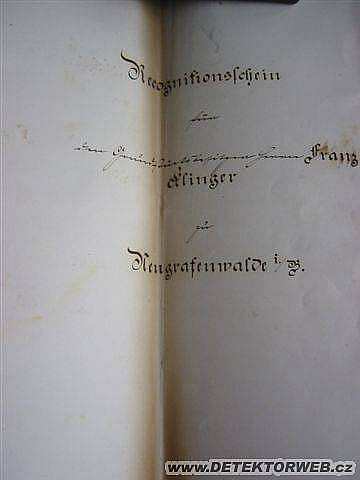 Recognitionsschein
für
den Grundbuchbesitzer Herrn Franz
Klinger
zu
Neugrafenwalde i/B.
www.DETEKTORWEB.cz